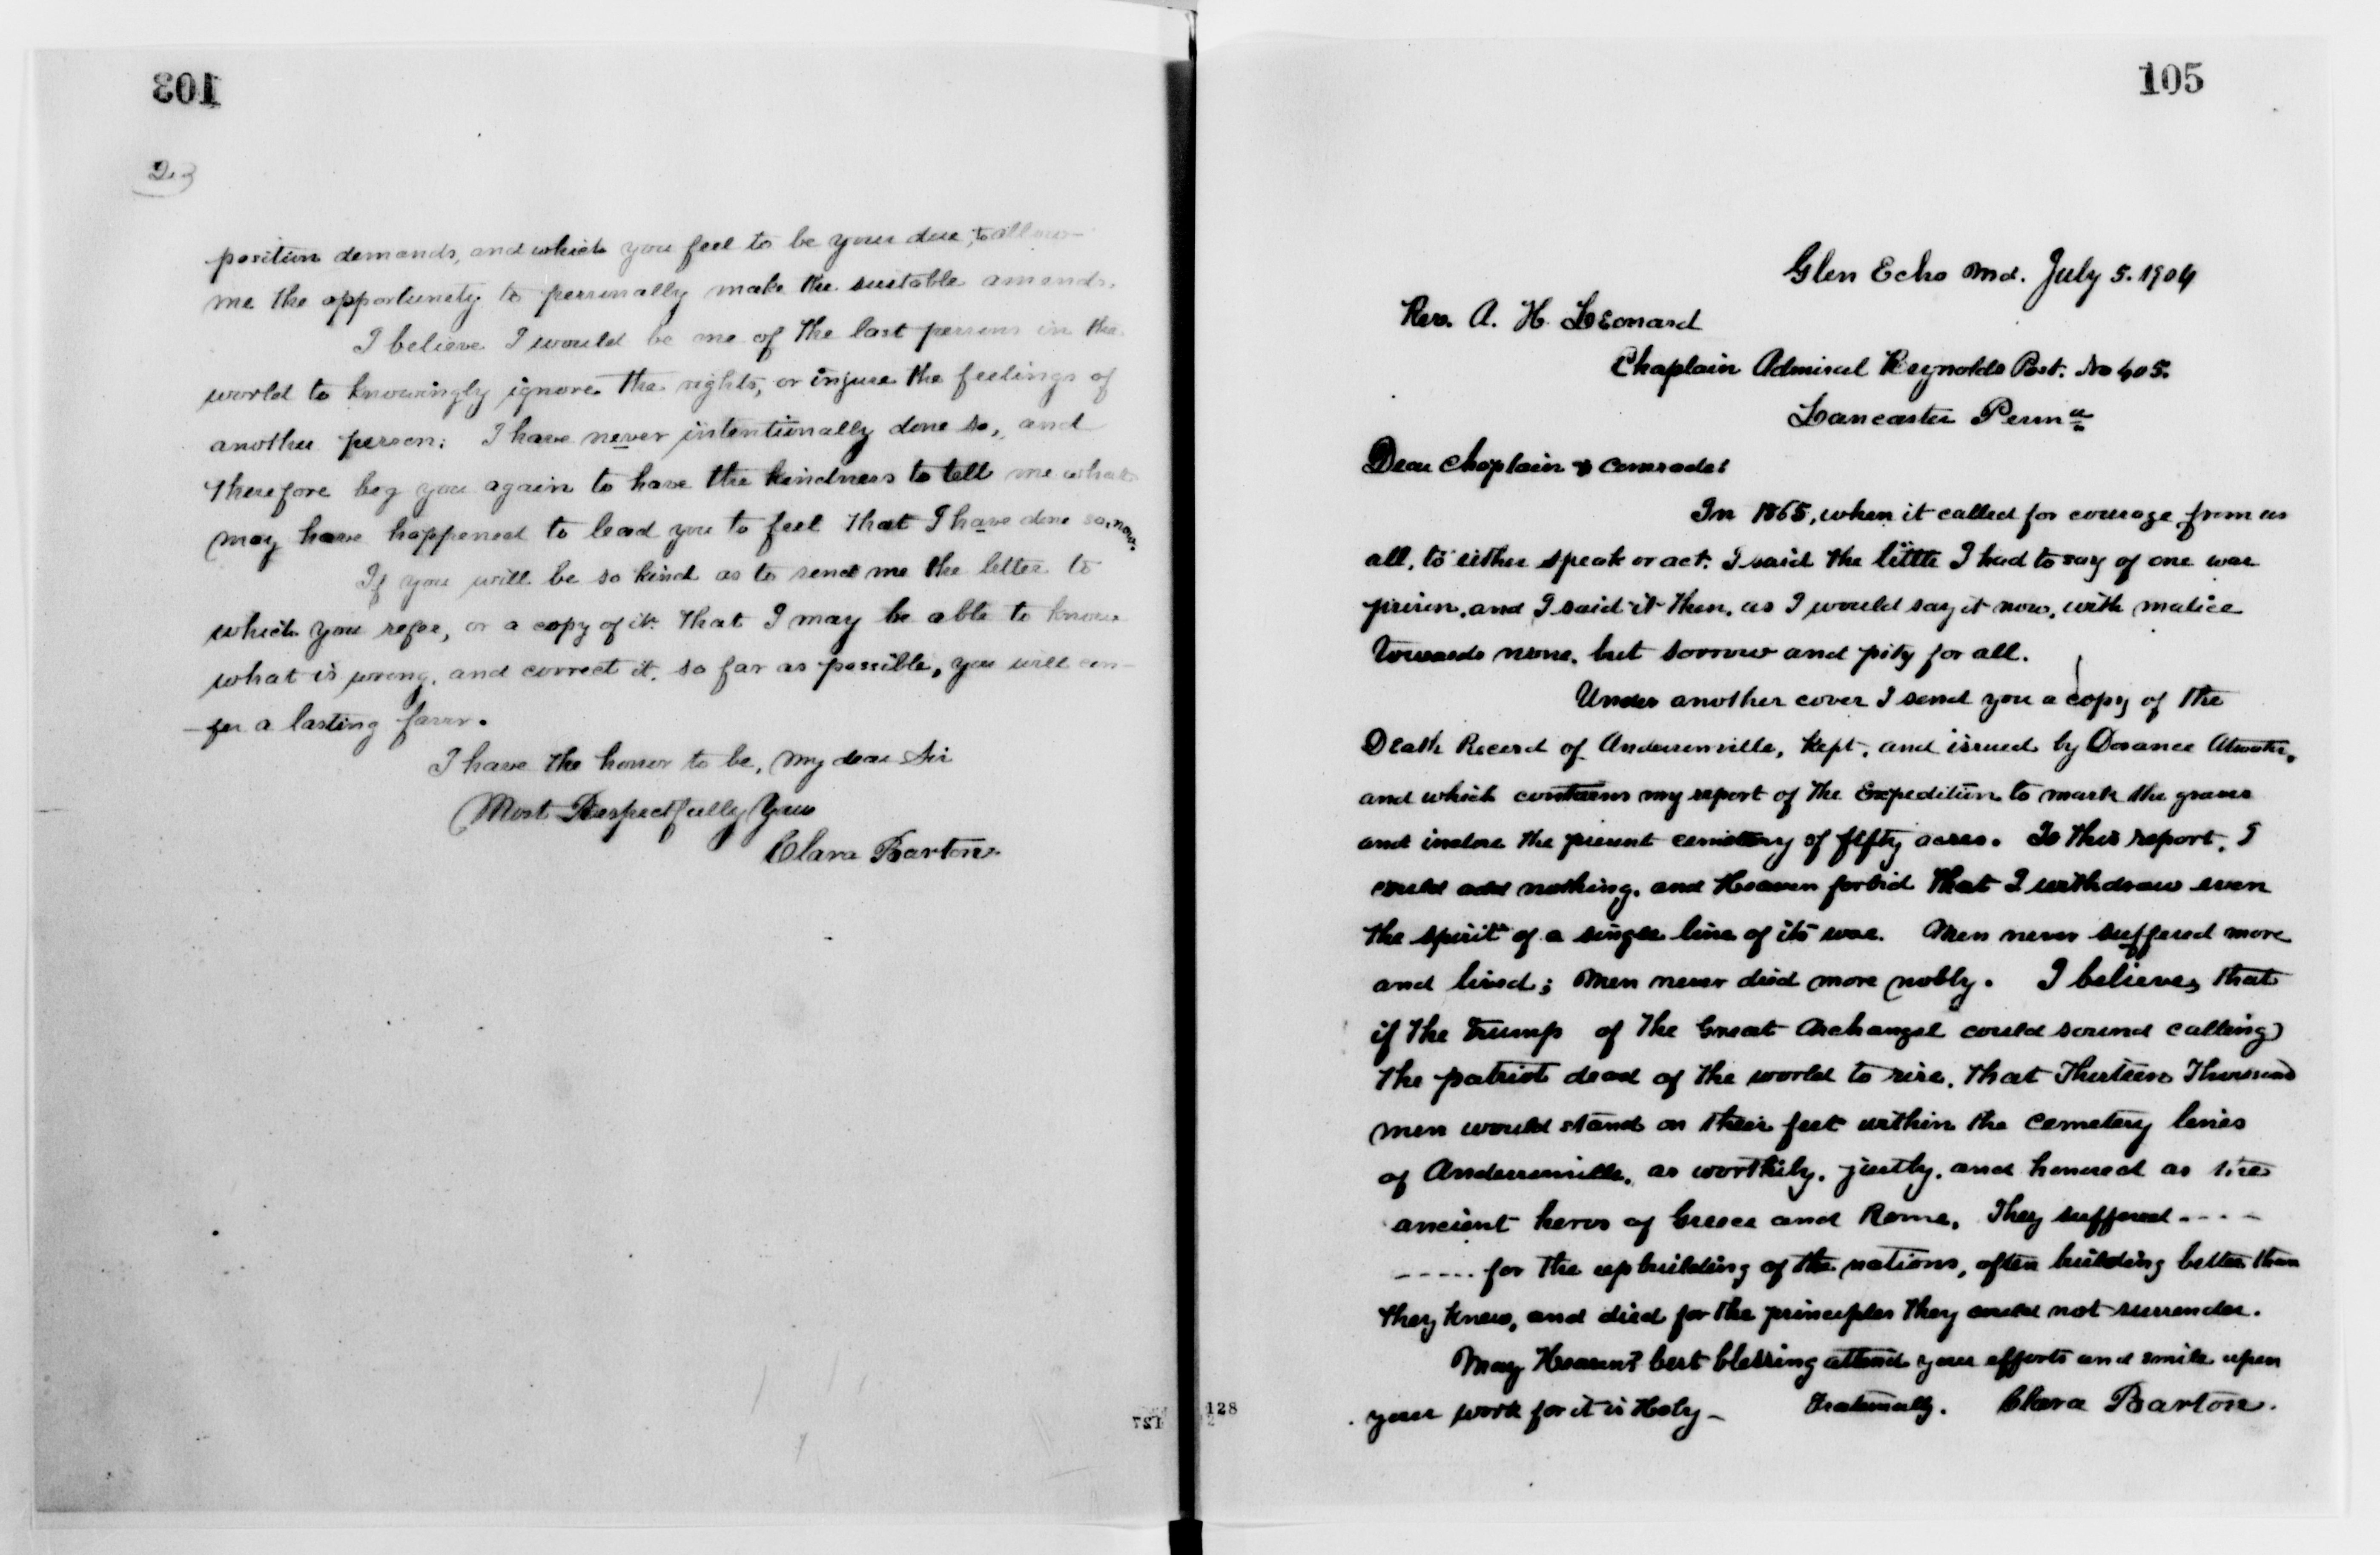 103
2.)
position demands, and which you feel to be your due, to allow-
me the opportunity to personally make the suitable amends.
I believe I would be one of the last persons in the
world to knowingly ignore the rights, or injure the feelings of
another person. I have never intentionally done so, and
therefore beg you again to have the kindness to tell me what
may have happened to lead you to feel that I have done so, now.
If you will be so kind as to send me the letter to
which you refer, or a copy of it that I may be able to know
what is wrong, and correct it, so far as possible, you will con-
-fer a lasting favor.
I have the honor to be, my dear Sir
Most Respectfully Yours
Clara Barton
127
105
Glen Echo Md. July 5. 1904
Rev. A. H. Leonard
Chaplain Admiral Reynolds Post. No 405.
Lancaster Penna
Dear Chaplain & Comrade:
In 1865, when it called for courage from us
all, to either speak or act. I said the little I had to say of one war
prison, and I said it then, as I would say it now, with malice
towards none, but sorrow and pity for all.
Under another cover I send you a copy of the
Death Record of Andersonville, kept, and issued by Dorance Atwater,
and which contains my report of the Expedition to mark the graves
and inclose the present cemetery of fifty acres. To this report, I
could add nothing, and Heaven forbid that I withdraw even
the spirit of a single line of its woe. Men never suffered more
and lived; Men never died more nobly. I believe, that
if the trump of the Great Archangel could sound calling
the patriot dead of the world to rise, that Thirteen Thousand
men would stand on their feet within the cemetery lines
of Andersonville, as worthily, justly, and honored as the
ancient heros of Greece and Rome. They suffered - - - -
- - - - - for the upbuilding of the nations, often building better than
they knew, and died for the principles they could not surrender.
May Heaven's best blessing attend your efforts and smile upon
your work for it is Holy - Fraternally. Clara Barton.
128